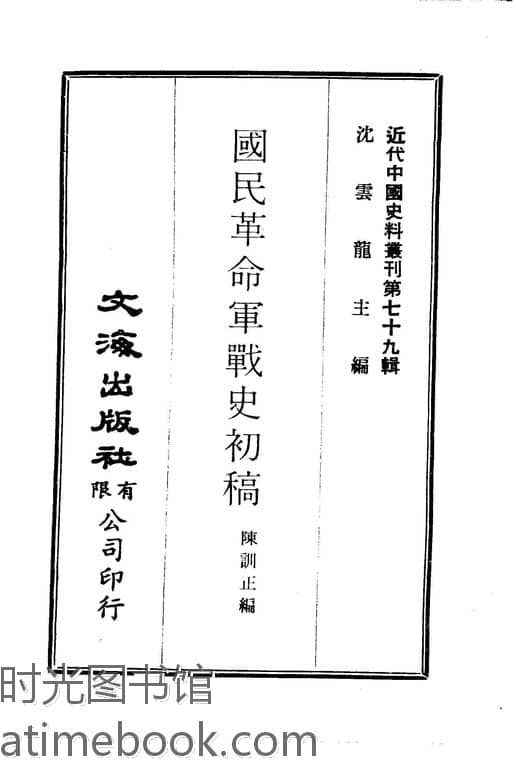 近代中國史料叢刊第七十九輯
沈雲龍主編
國民革命軍戰史初稿
陳訓正編
文海出版社有限公司印行
时光图书馆
atimebook.com